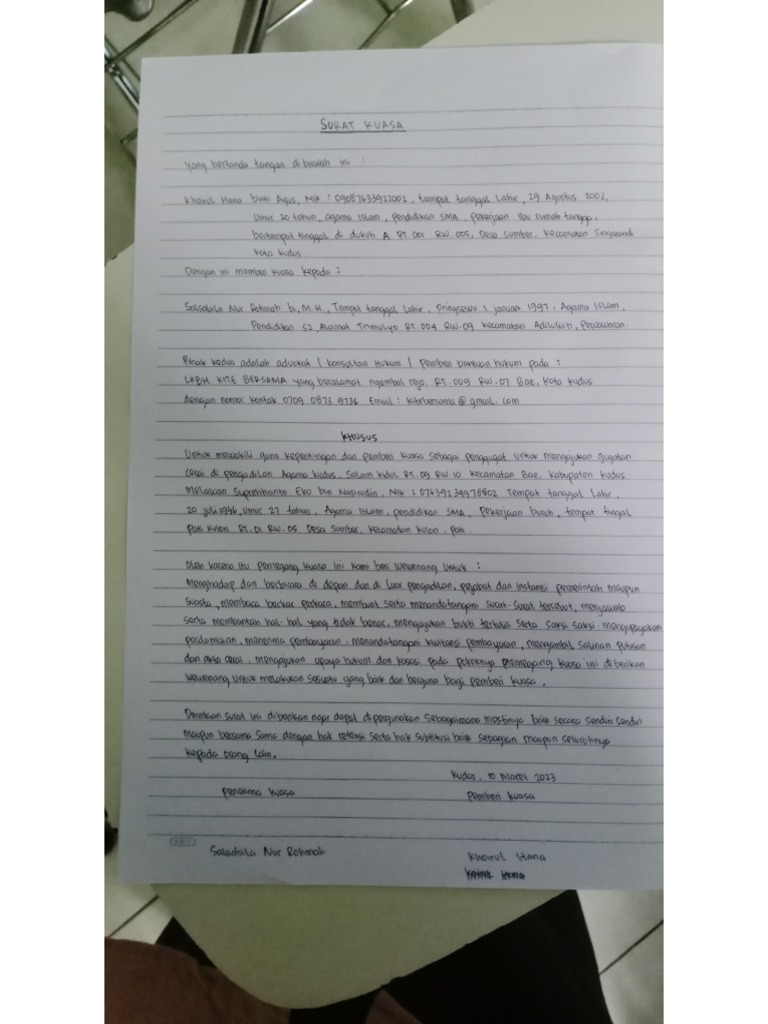 SURAT KUASA
Yang bertanda tangan di bawah ini :
Khoirul Hana binti Agus, NIK : 09087633922002, tempat tanggal Lahir, 29 Agustus 2002,
Umur 20 tahun, agama Islam, pendidikan SMA, pekerjaan Ibu rumah tangga,
bertempat tinggal di dukuh A RT. 001 RW. 005, Desa Sumber, Kecamatan
Kota Kudus.
Dengan ini memberi kuasa kepada :
Salsabila Nur Rohmah M.H., Tempat tanggal Lahir, Pringsewu 1 januari 1997, Agama Islam,
Pendidikan S2, Alamat Trimulyo RT. 004 RW. 09 Kecamatan Adiluwih,
Pihak kedua adalah advokat / konsultan Hukum / Pemberi bantuan hukum pada :
LKBH KITE BERSAMA yang beralamat ngembal rejo RT. 009 RW. 07 Bae, Kota Kudus
dengan nomor kontak 0709 0873 9736 Email : @gmail.com
KHUSUS
Untuk mewakili guna kepentingan dan pemberi kuasa sebagai penggugat untuk mengajukan gugatan
Cerai di pengadilan Agama Kudus, RT. 09 RW. 10 Kecamatan Bae, Kabupaten Kudus
Melawan Eko bin Nasirudin, NIK : Tempat tanggal Lahir,
20 juli 1996, umur 27 tahun, Agama Islam, pendidikan SMA, pekerjaan buruh, tempat tinggal
Pati Kulon RT. 01 RW. 05 Desa Sumber, Kecamatan Kulon, Pati.
Oleh karena itu pemegang kuasa ini kami beri wewenang untuk :
Menghadap dan berbicara di depan dan di luar pengadilan, pejabat dari instansi pemerintah maupun
swasta, membaca berkas perkara, membuat serta menandatangani surat-surat tersebut, menjawab
serta membantah hal-hal yang tidak benar, mengajukan bukti tertulis serta saksi-saksi mengupayakan
perdamaian, menerima pembayaran, menandatangani kwitansi pembayaran, mengambil salinan putusan
dan akta cerai, mengajukan upaya hukum dan kasasi pada pokoknya pemegang kuasa ini diberikan
wewenang untuk melakukan sesuatu yang baik dan berguna bagi pemberi kuasa.
Demikian surat ini diberikan agar dapat dipergunakan sebagaimana mestinya baik secara sendiri sendiri
maupun bersama sama dengan hak retensi serta hak substitusi baik sebagian maupun seluruhnya
kepada orang lain.
Kudus, 10 Maret 2023
Penerima Kuasa Pemberi Kuasa
Salsabila Nur Rohmah Khoirul Hana